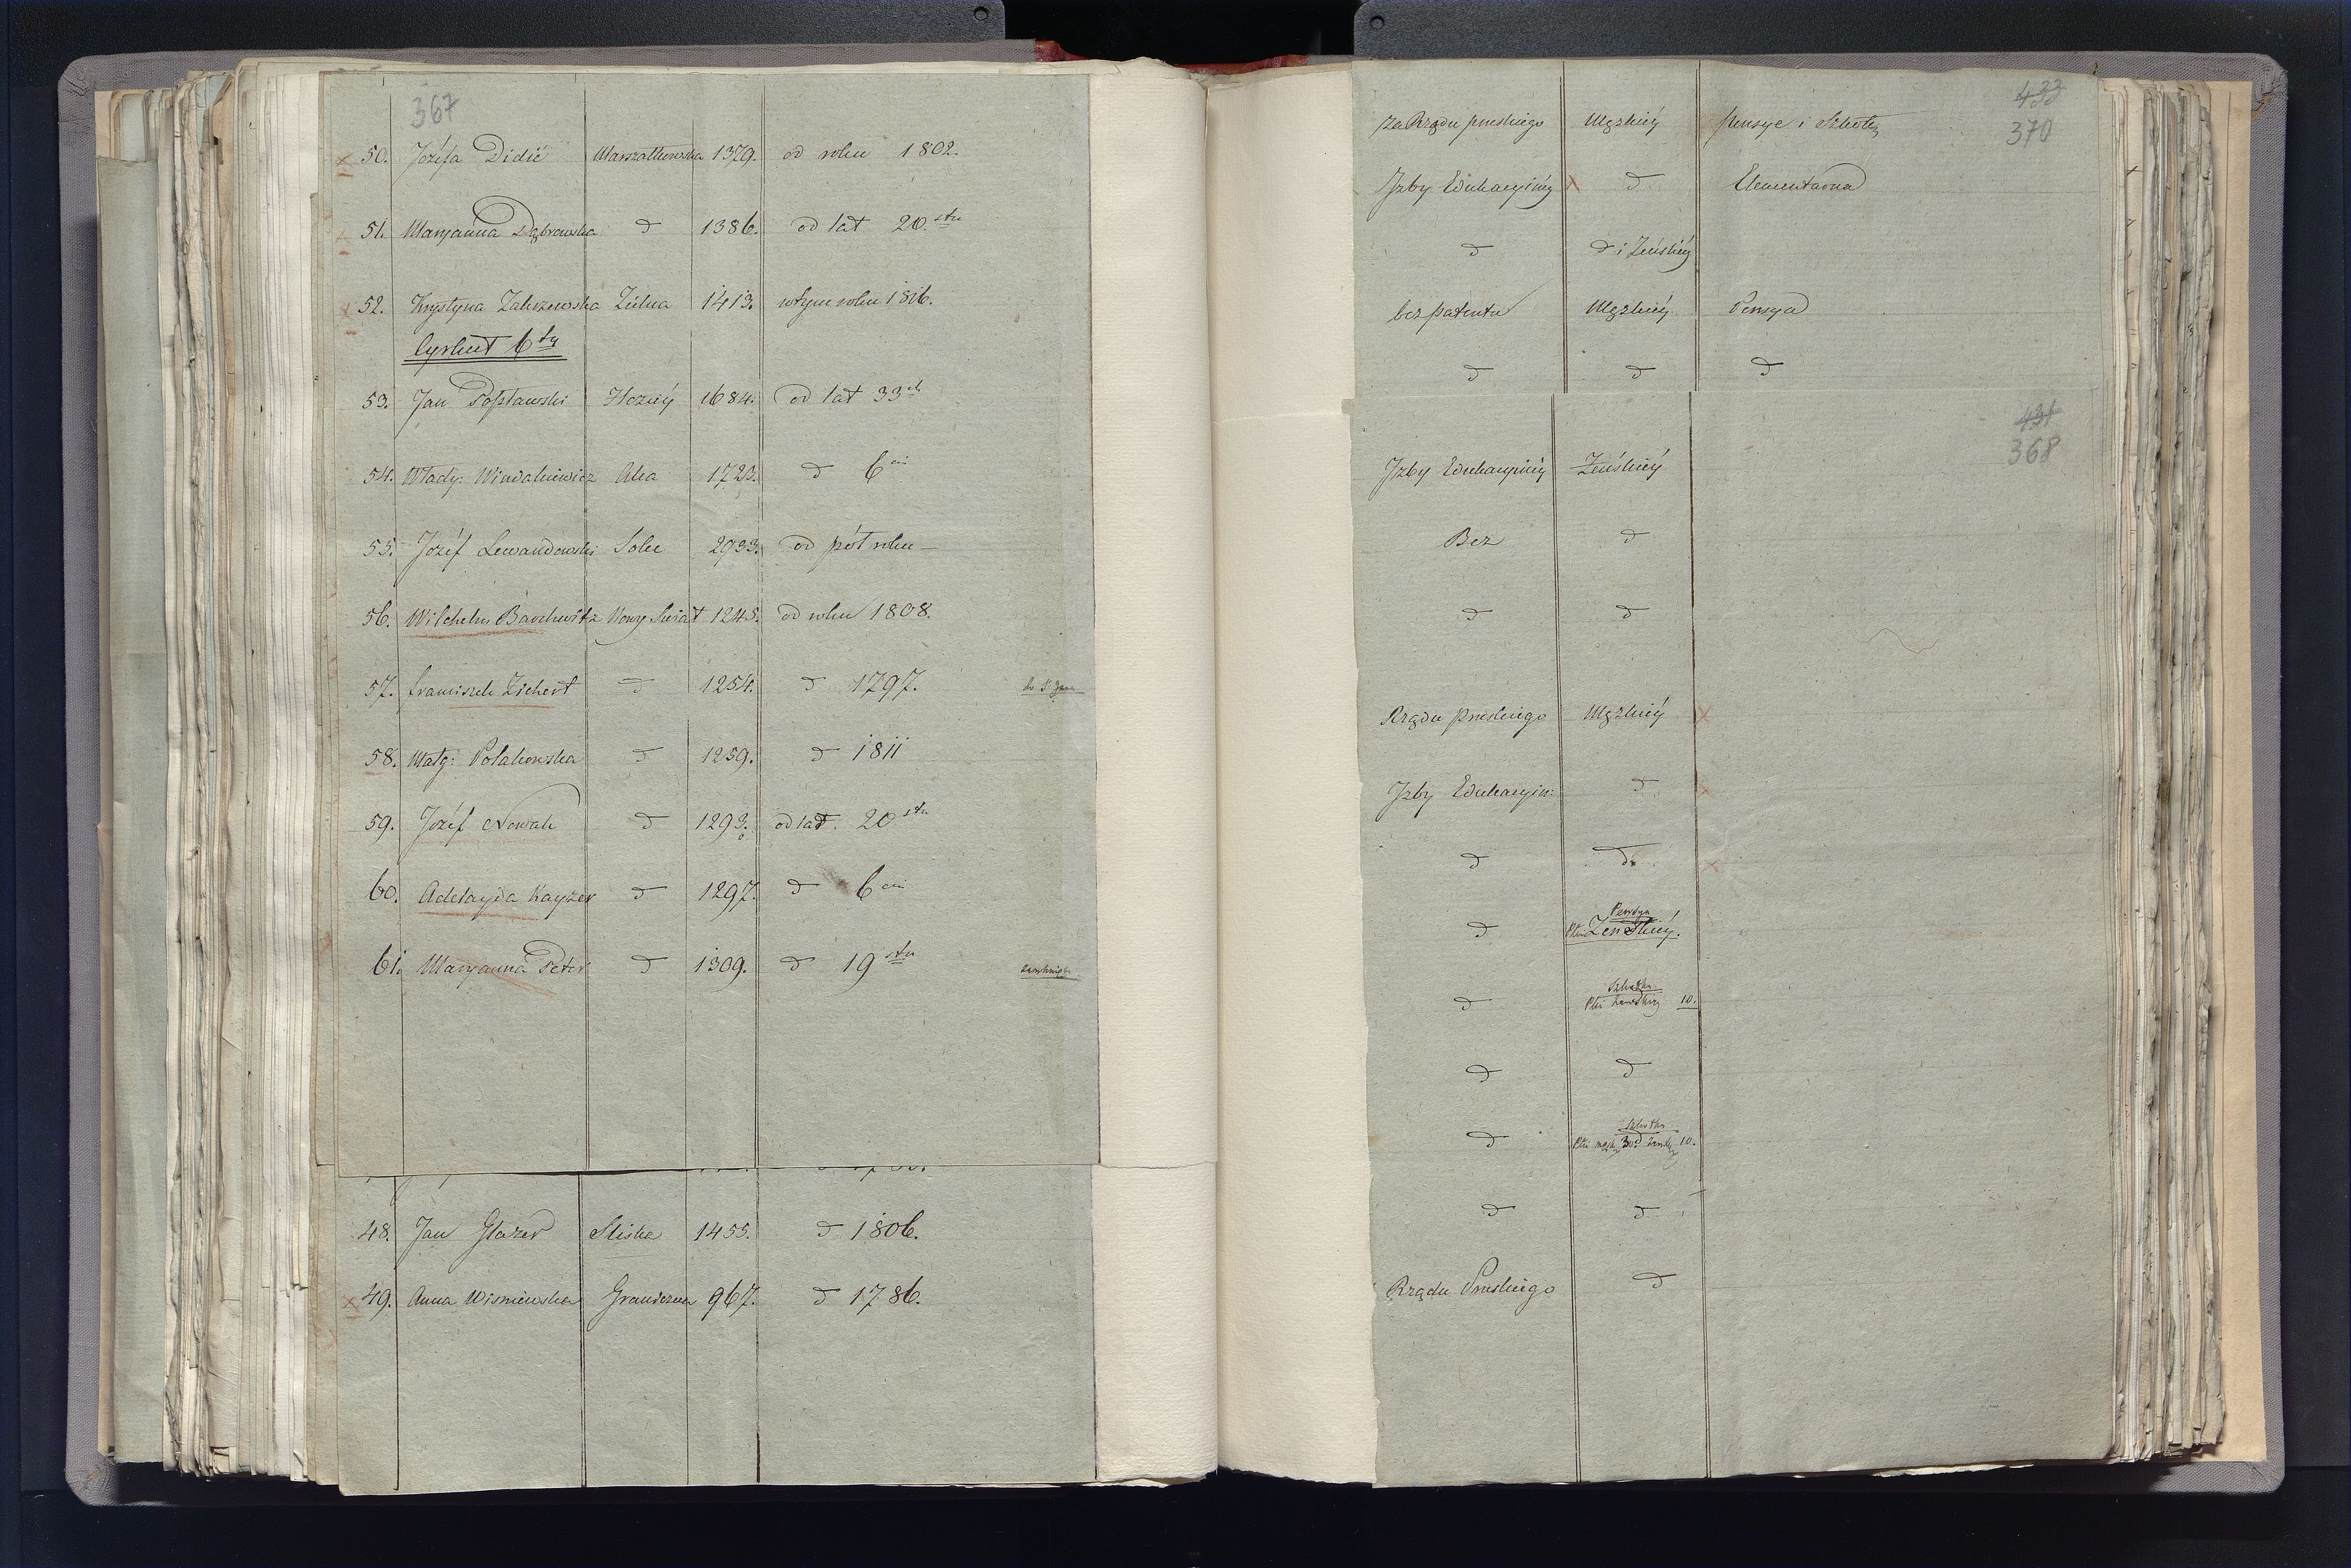 367
50. Józefa Didié Marszałkowska 1379. od roku 1802.
51. Maryanna Dąbrowska d 1386. od lat 20.stu
52. Krystyna Zakrzewska Zielna 1413. w tym roku 1816.
Cyrkuł 6ty
53. Jan Popławski Hozéy 1684. od lat 33ch
54. Włady: Windakiewicz Alea 1723. d 6ciu
55. Józéf Lewandowski Solec 2933. od pół roku —
56. Wilchelm Bachwitz Nowy Swiat 1245. od roku 1808.
57. Franciszek Zichert d 1254. d 1797.
58. Małg: Polakowska d 1259. d 1811
59. Józéf Nowak d 1293. od lat. 20stu
60. Adelayda Kayzer d 1297. d 6ciu
61. Maryanna Peter d 1309. d 19stu
48. Jan Glazer Sliska 1455. d 1806.
49. Anna Wisniewska Graniczna 967. d 1786.
433
370
za Rządu pruskiego Męzkiéy pensye i Szkoły
Izby Edukacyinéy d Elementarna
d d i Żeńskiéy
bez patentu Męzkiéy Pensya
d d d
431
368
Izby Edukacyinéy Żeńskiéy
Bez d
d d
Rządu pruskiego Męzkiéy
Izby Edukacyin: d
d d
Pensya
d Płci Zenskiéy.
Szkółka
d Płci żenskiey 10.
d d
Szkółka
d Płci męzk 30. żensk 10.
d d
Rządu Pruskiego d